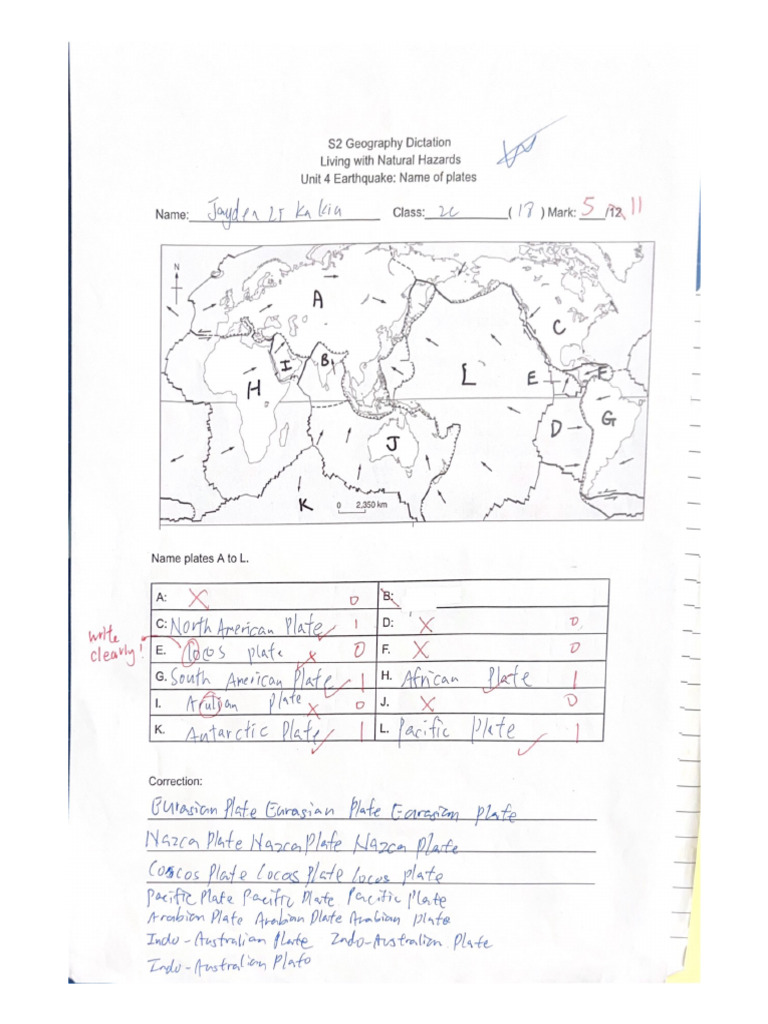 S2 Geography Dictation
Living with Natural Hazards
Unit 4 Earthquake: Name of plates
Name: Jayden Class: 2C (18) Mark: 5 /12 11
N
A
C
I
B
L
E
F
H
G
D
J
K
0 2,350 km
Name plates A to L.
A: X 0 B:
C: North American Plate 1 D: X 0
write clearly!
E. Locos plate X 0 F. X 0
G. South American Plate 1 H. African Plate 1
I. Arulian Plate X 0 J. X 0
K. Antarctic Plate 1 L. Pacific Plate 1
Correction:
Eurasian Plate Eurasian Plate Eurasian Plate
Nazca Plate Nazca Plate Nazca Plate
Cocos Plate Locos Plate Locos plate
Pacific Plate Pacific Plate Pacific Plate
Arabian Plate Arabian Plate Arabian plate
Indo-Australian Plate Indo-Australian Plate
Indo-Australian Plato